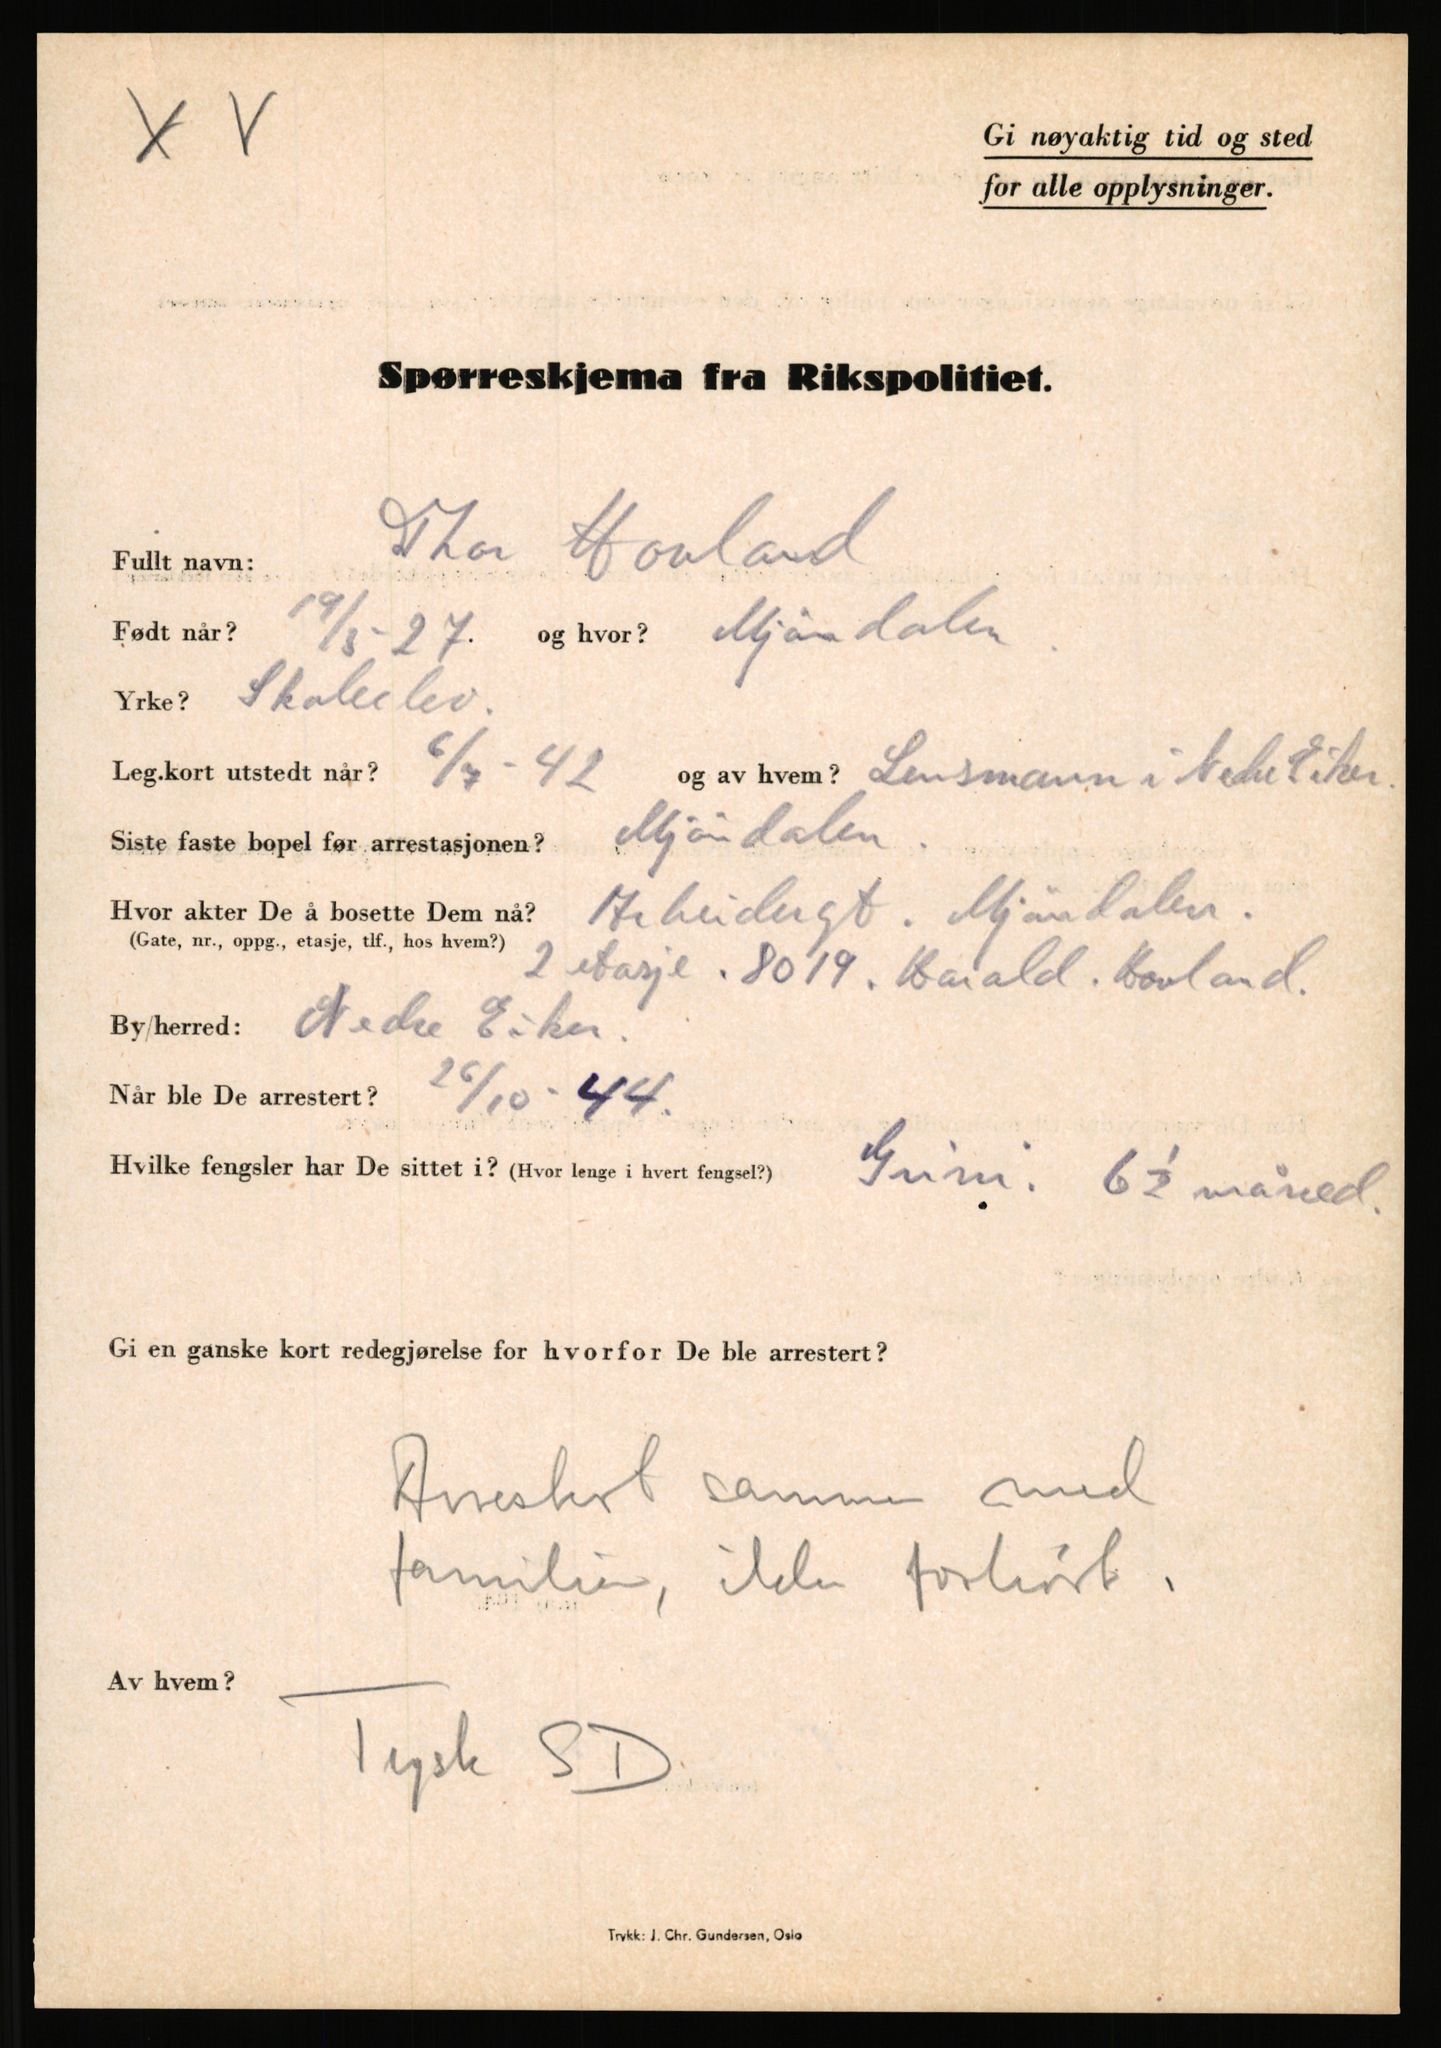 X V
Gi nøyaktig tid og sted
for alle opplysninger.
Spørreskjema fra Rikspolitiet.
Fullt navn: Thor Hovland
Født når? 19/5-27. og hvor? Mjöndalen.
Yrke? Skoleelev.
Leg.kort utstedt når? 6/7-42 og av hvem? Lensmann i Nedre Eiker.
Siste faste bopel før arrestasjonen? Mjöndalen.
Hvor akter De å bosette Dem nå? Arbeidergt. Mjöndalen.
(Gate, nr., oppg., etasje, tlf., hos hvem?) 2 etasje. 8019. Harald. Hovland.
By/herred: Nedre Eiker.
Når ble De arrestert? 26/10-44.
Hvilke fengsler har De sittet i? (Hvor lenge i hvert fengsel?) Grini. 6 1/2 måned.
Gi en ganske kort redegjørelse for hvorfor De ble arrestert?
Arrestert sammen med
familien, ikke forhört.
Av hvem?
Tysk SD
Trykk: J. Chr. Gundersen, Oslo